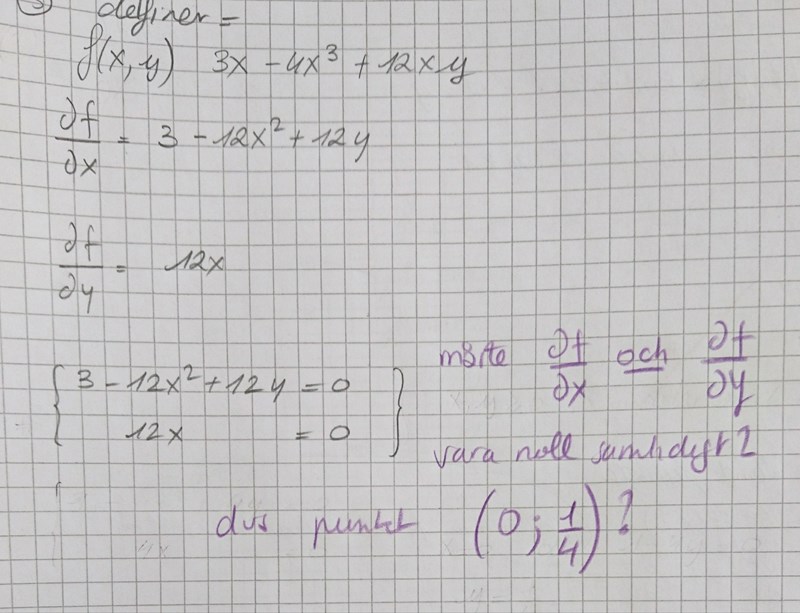 definer =
f(x, y) 3x - 4x³ + 12xy
∂f/∂x = 3 - 12x² + 12y
∂f/∂y = 12x
{ 3 - 12x² + 12y = 0 }
12x = 0
måste ∂f/∂x och ∂f/∂y
vara noll samtidigt?
dvs punkt (0; 1/4)?